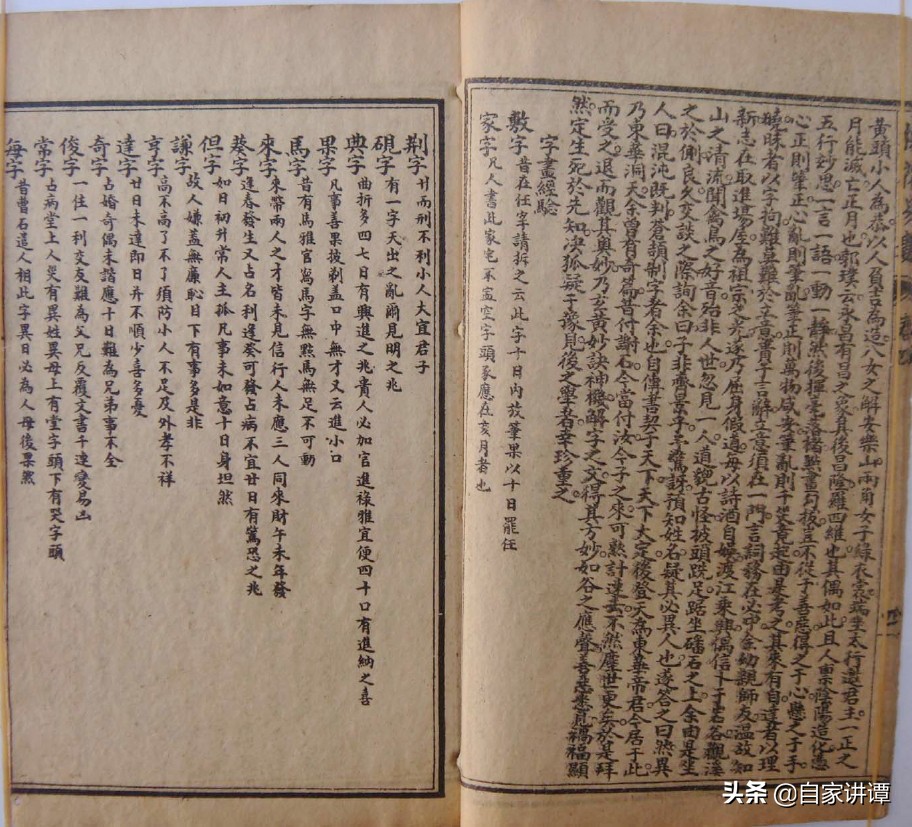 黃頭小人為恭以人負告為造八女之解安樂山兩角女子綠衣裳端坐太行邀君王一正之
月能滅亡正月也郭璞云永昌有昌之象其後昌隆羅四維也其偶如此且人稟陰陽造化憑
五行妙思一言一語一動一靜然後揮毫落楮點畫勾拔豈不從于善惡得之于心懸之于手
心正則筆正心亂則筆亂筆正則萬物咸安筆亂則千災竟起由是考之其來有自達者以理
曉昧者以字拘難草難於立意貴于言辭立意須在一門言詞務在必中余幼親師友溫故知
新志在取進場屋為祖宗之光遂乃歷身假道每以詩酒自娛渡江乘興偶信卜于岩谷觀溪
山之清流聞禽鳥之好音殆非人世忽見一人道貌古怪披頭跣足踞坐磻石之上余由是坐
之於側良久交談之際詢余曰子非齊景子乎驚訝預知姓名疑其必異人也遂答之曰然異
人曰混沌既判蒼頡制字者余也自傳書契于天下天下大定後登天為東華帝君今居于此
乃東華洞天余曾有奇篇昔付謝石今當付汝今子之來可熟計速去不然塵世更矣於是拜
而受之退而觀其奧妙乃玄黃妙訣神機解字之文得其方妙如谷之應聲善惡悉見禍福顯
然定生死於先知決狐疑于豫見後之學者幸珍重之
字畫經驗
敷字 昔在任字請拆之云此字十日內放筆果以十日罷任
家字 凡人書此家宅不 空字頭豕應在亥月者也
荆字 廾而刑不利小人大宜君子
硯字 有一字天出之亂爾見明之兆
典字 曲折多四七日有興進之兆貴人必加官進祿雅宜便四十口有進納之喜
果字 凡事善果披剃蓋口中無才又云進小口
馬字 昔有馬雅官寫馬字無點馬無足不可動
來字 來帶兩人之才皆未見信行人未應三人同來財午未年發
葵字 逢春發生又占名利逢癸可發占病不宜廿日有驚恐之兆
但字 如日初升常人主孤凡事未如意十日身坦然
謙字 故人嫌蓋無廉恥目下有事多是非
亨字 高不高了不了須防小人不足及外孝不祥
達字 廿日未達即日并不順少喜多憂
奇字 占婚奇偶未諧應十日難為兄弟事不全
俊字 一住一利交友難為父兄反覆文書千連變易出
常字 占病堂上人災有異姓異母上有堂字頭下有哭字頭
每字 昔曹石遣人相此字異日必為人母後果然
头条 @自家讲谭